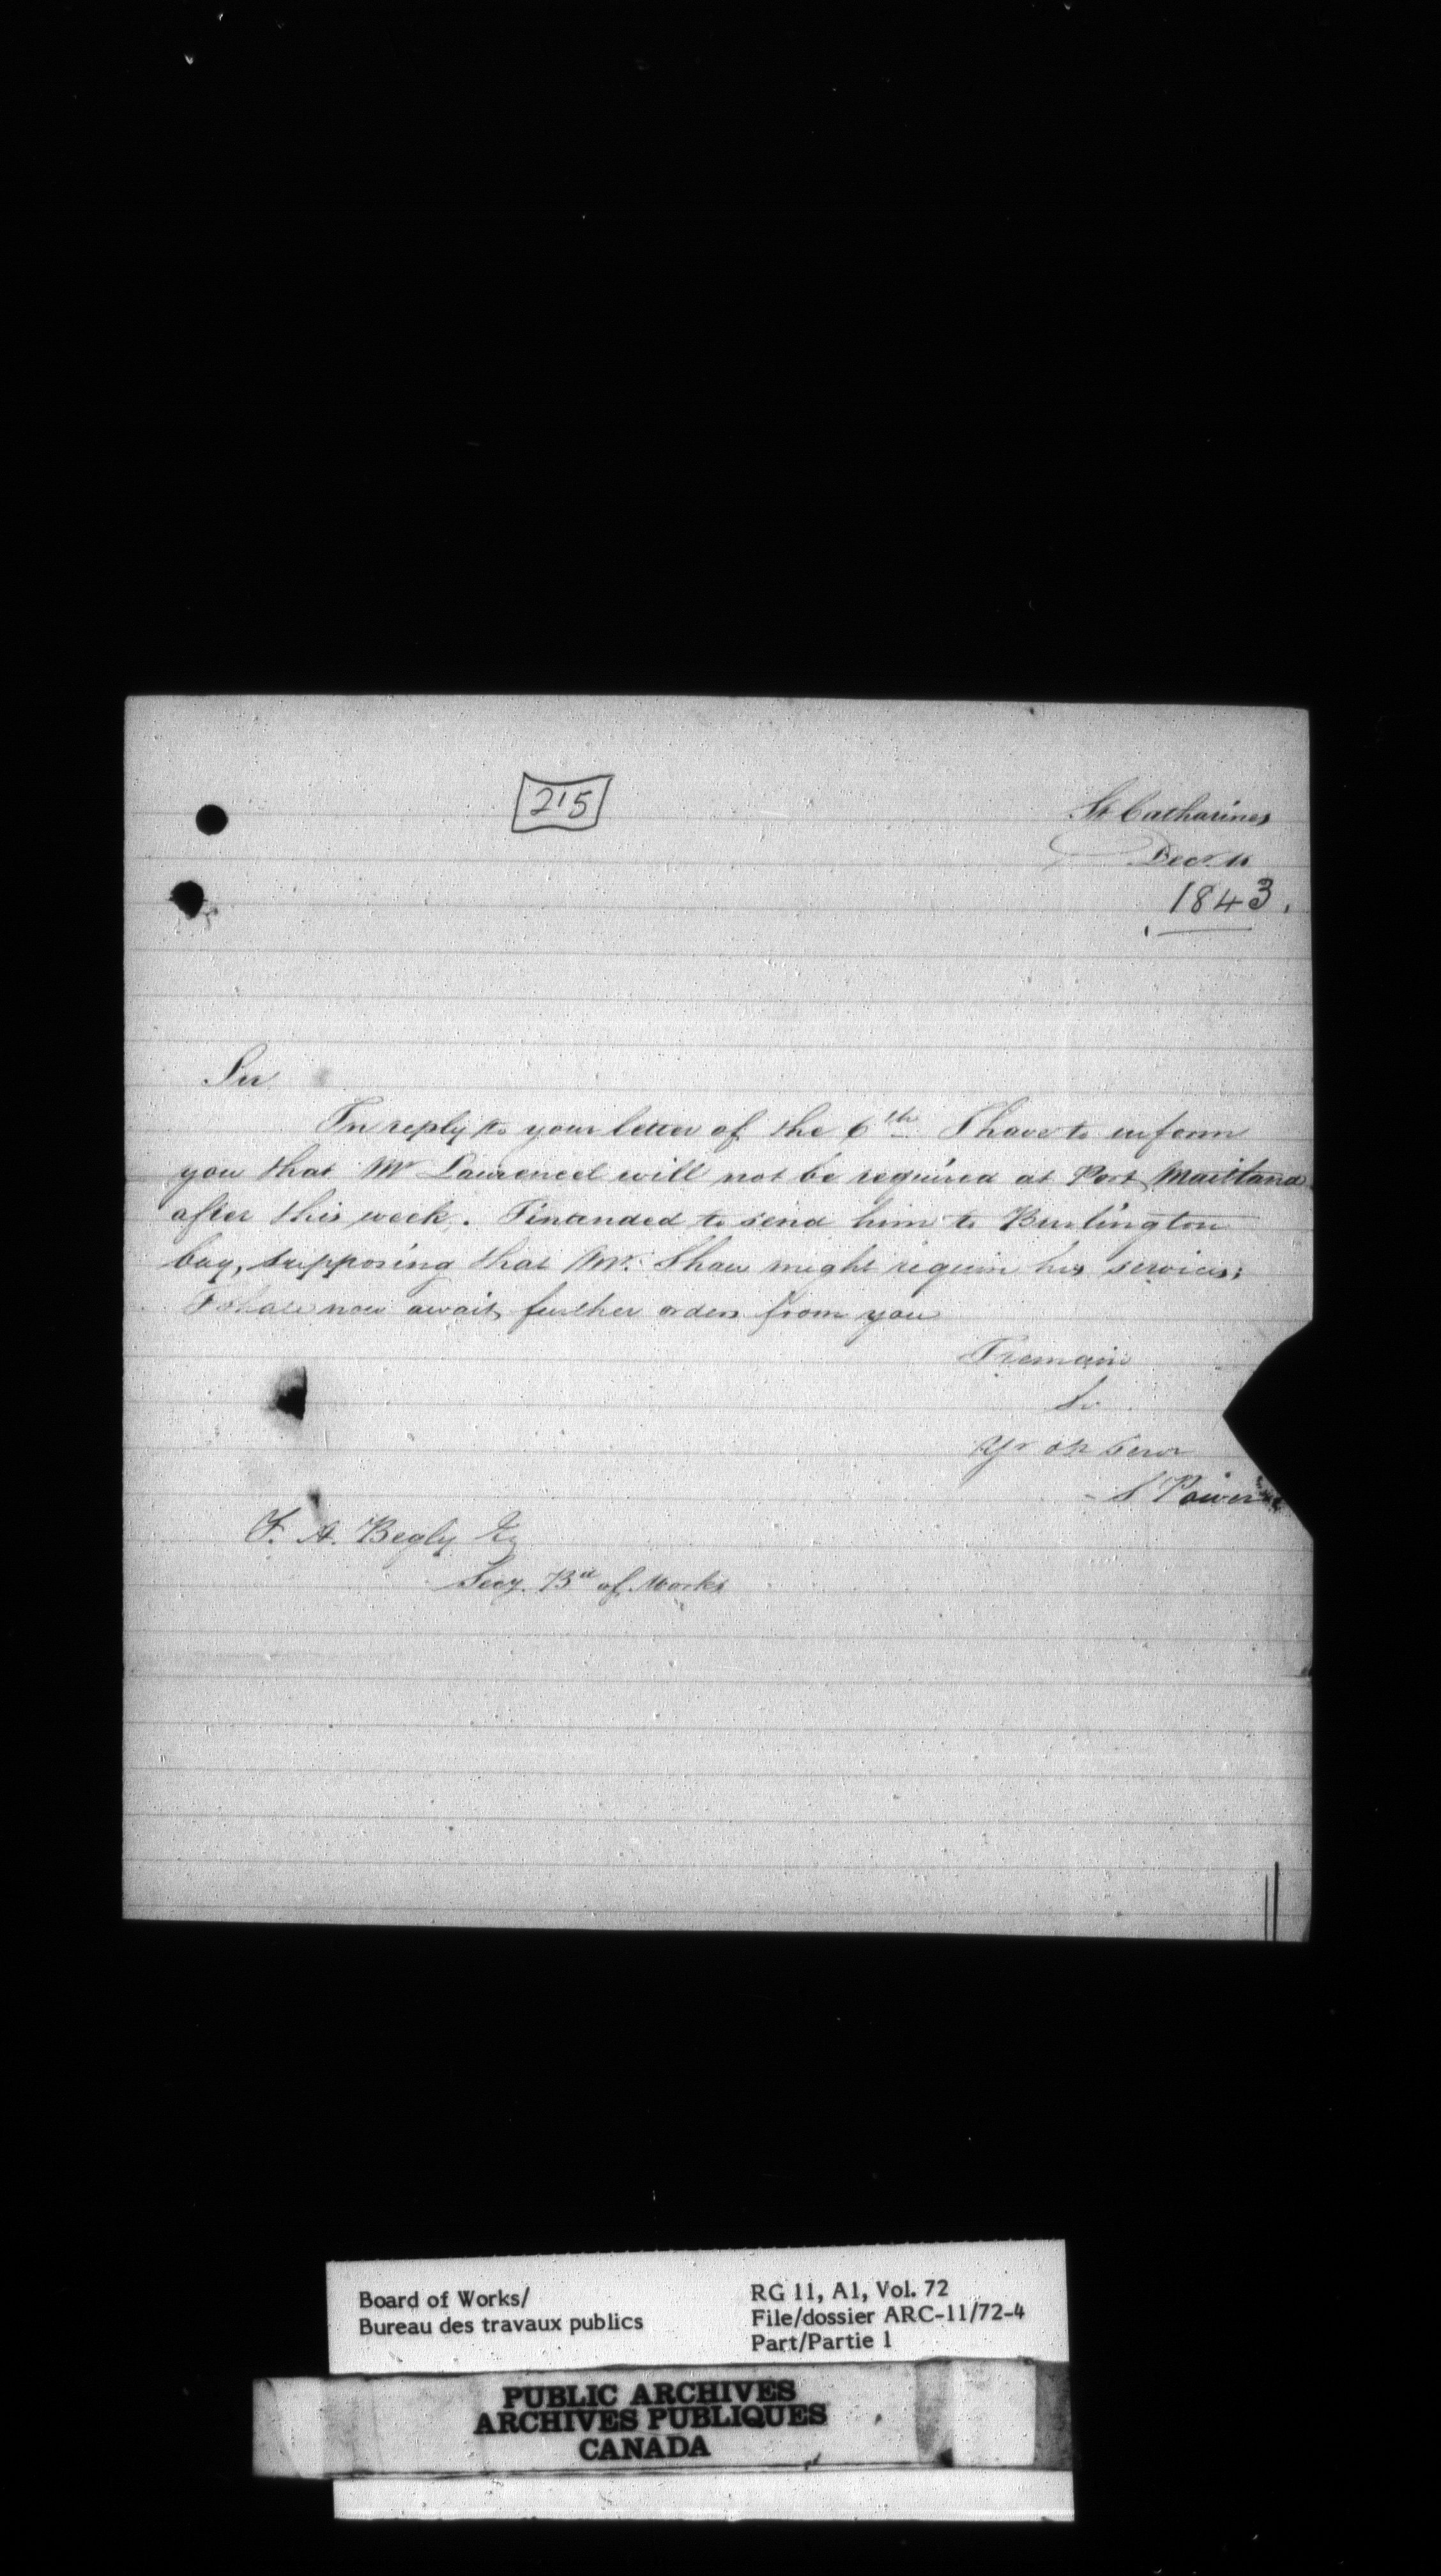 215
St Catharines
Decr 11
1843.
Sir
In reply to your letter of the 6th I have to inform
you that Mr Laurenced will not be required at Port Maitland
after this week. I intended to send him to Burlington
bay, supposing that Mr. Shaw might require his services;
I shall now await further orders from you
I remain
Sir
Yr ob Servt
S Power
F. A. Begly Eq
Secy. Bd of Works
Board of Works/
Bureau des travaux publics
RG 11, A1, Vol. 72
File/dossier ARC-11/72-4
Part/Partie 1
PUBLIC ARCHIVES
ARCHIVES PUBLIQUES
CANADA